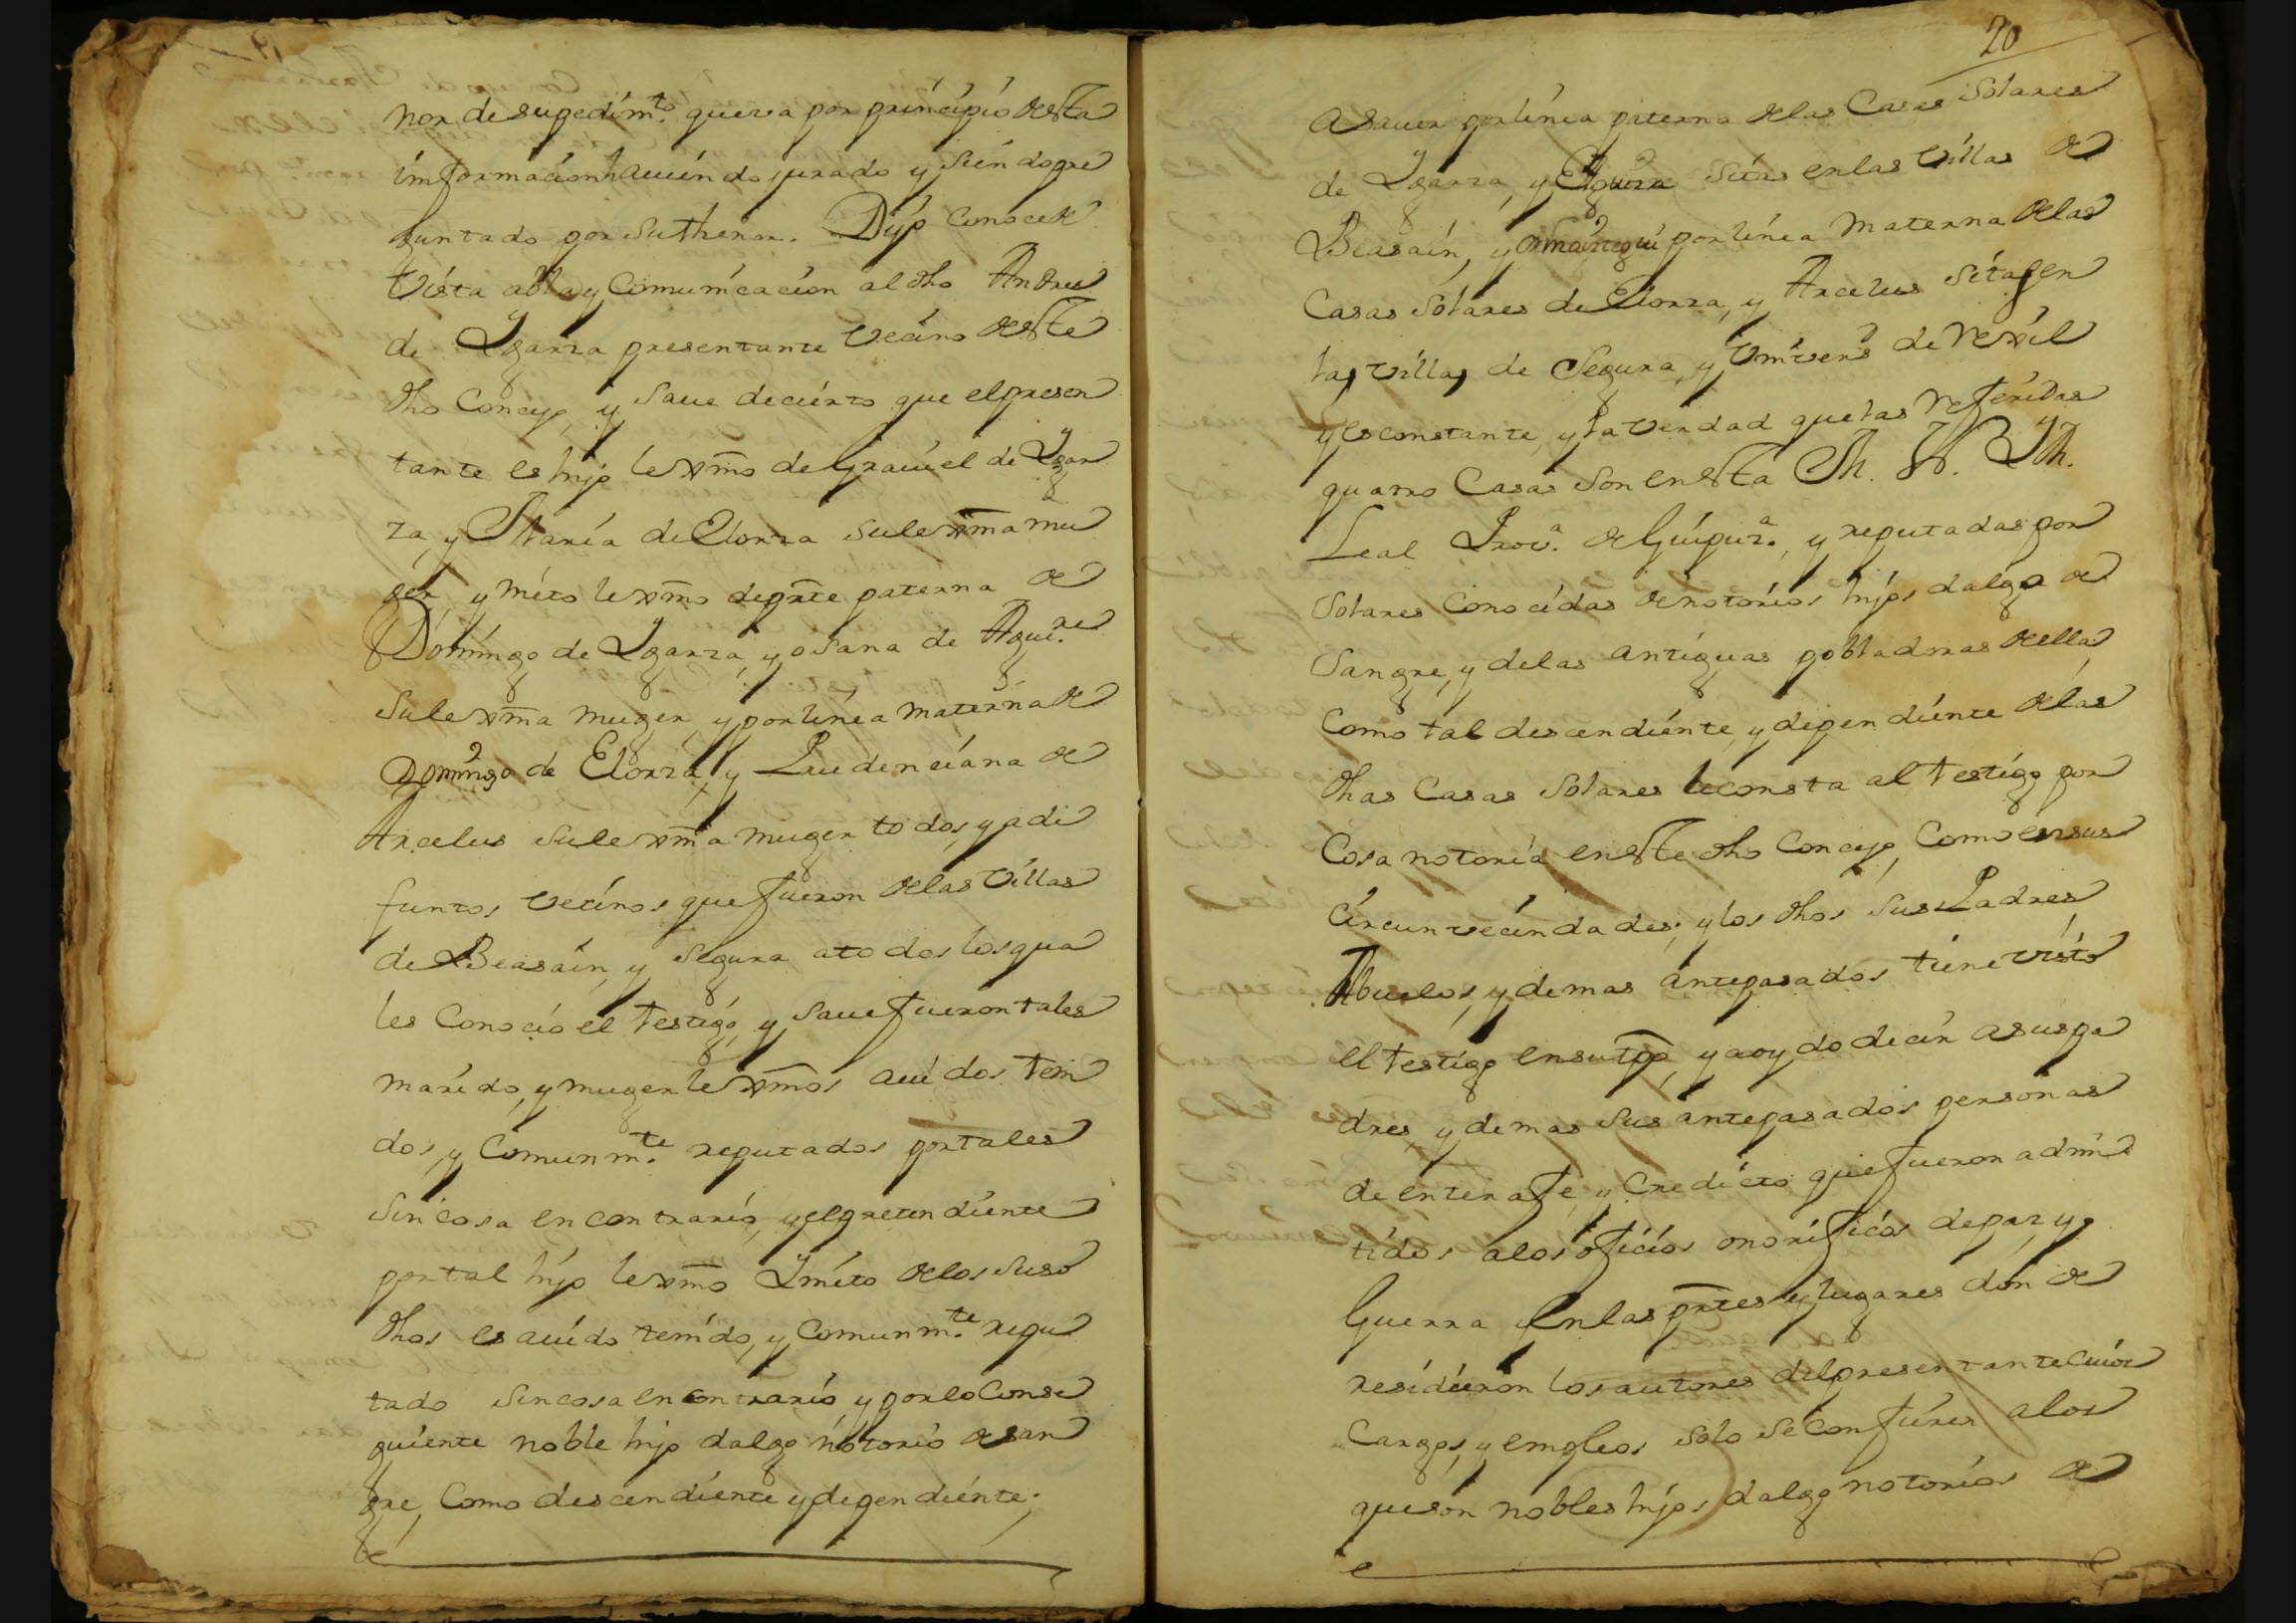 nor de supedim.to que va por principio desta
informacion haviendo jurado y siendo pre
guntado por su thenor. Dijo conoce de
vista abla y comunicacion al dho Andres
de Ygarza presentante vecino deste
dho Concejo, y save de cierto que el presen
tante es hijo lexmo de Graviel de Ygar
za, y Maria de Elorza su lexma mu
ger, y nieto lexmo de prte paterna de
Domingo de Ygarza, y osana de Aguirre
su lexma muger, y por linea materna de
Domingo de Elorza, y Prudenciana de
Arcelus su lexma muger todos, ya di
funtos vecinos que fueron de las villas
de Beasain, y Segura a todos los qua
les conocio el testigo, y save fueron tales
marido, y muger lexmos avidos teni
dos, y comunm.te reputados por tales
sin cosa en contrario, y el pretendiente
por tal hijo lexmo Y nieto de los suso
dhos es avido tenido, y comunm.te repu
tado sin cosa en contrario y por lo conse
guiente noble hijo dalgo notorio de san
gre, como descendiente y dependiente;
20
a saver por linea paterna de las Casas Solares
de Ygarza, y Elguera sitas en las villas de
Beasain, y ormaztegui por linea materna de las
Casas Solares de Elorza, y Arcelus sitas en
las villas de Segura, y Univers.d de Rexil
y es constante, y la verdad que las referidas
quatro Casas son en esta M. N. Y M.
Leal Prov.a de Guipuz.a, y reputadas por
Solares conocidas de notorios hijos dalgo de
sangre, y de las antiguas pobladoras della
como tal descendiente, y dependiente de las
dhas Casas Solares le consta al testigo por
cosa notoria en este dho Concejo, como en sus
circunvecindades, y los dhos sus Padres
Abuelos, y demas antepasados tiene visto
el testigo en su tpo, y a oydo decir a sus pa
dres, y demas sus antepasados personas
de entera fe, y credicto que fueron admi
tidos a los oficios onorificos de paz, y
Guerra y en las prtes y lugares don de
residieron los autores del presentante cuios
cargos, y empleos solo se confieren a los
que son nobles hijos dalgo notorios de